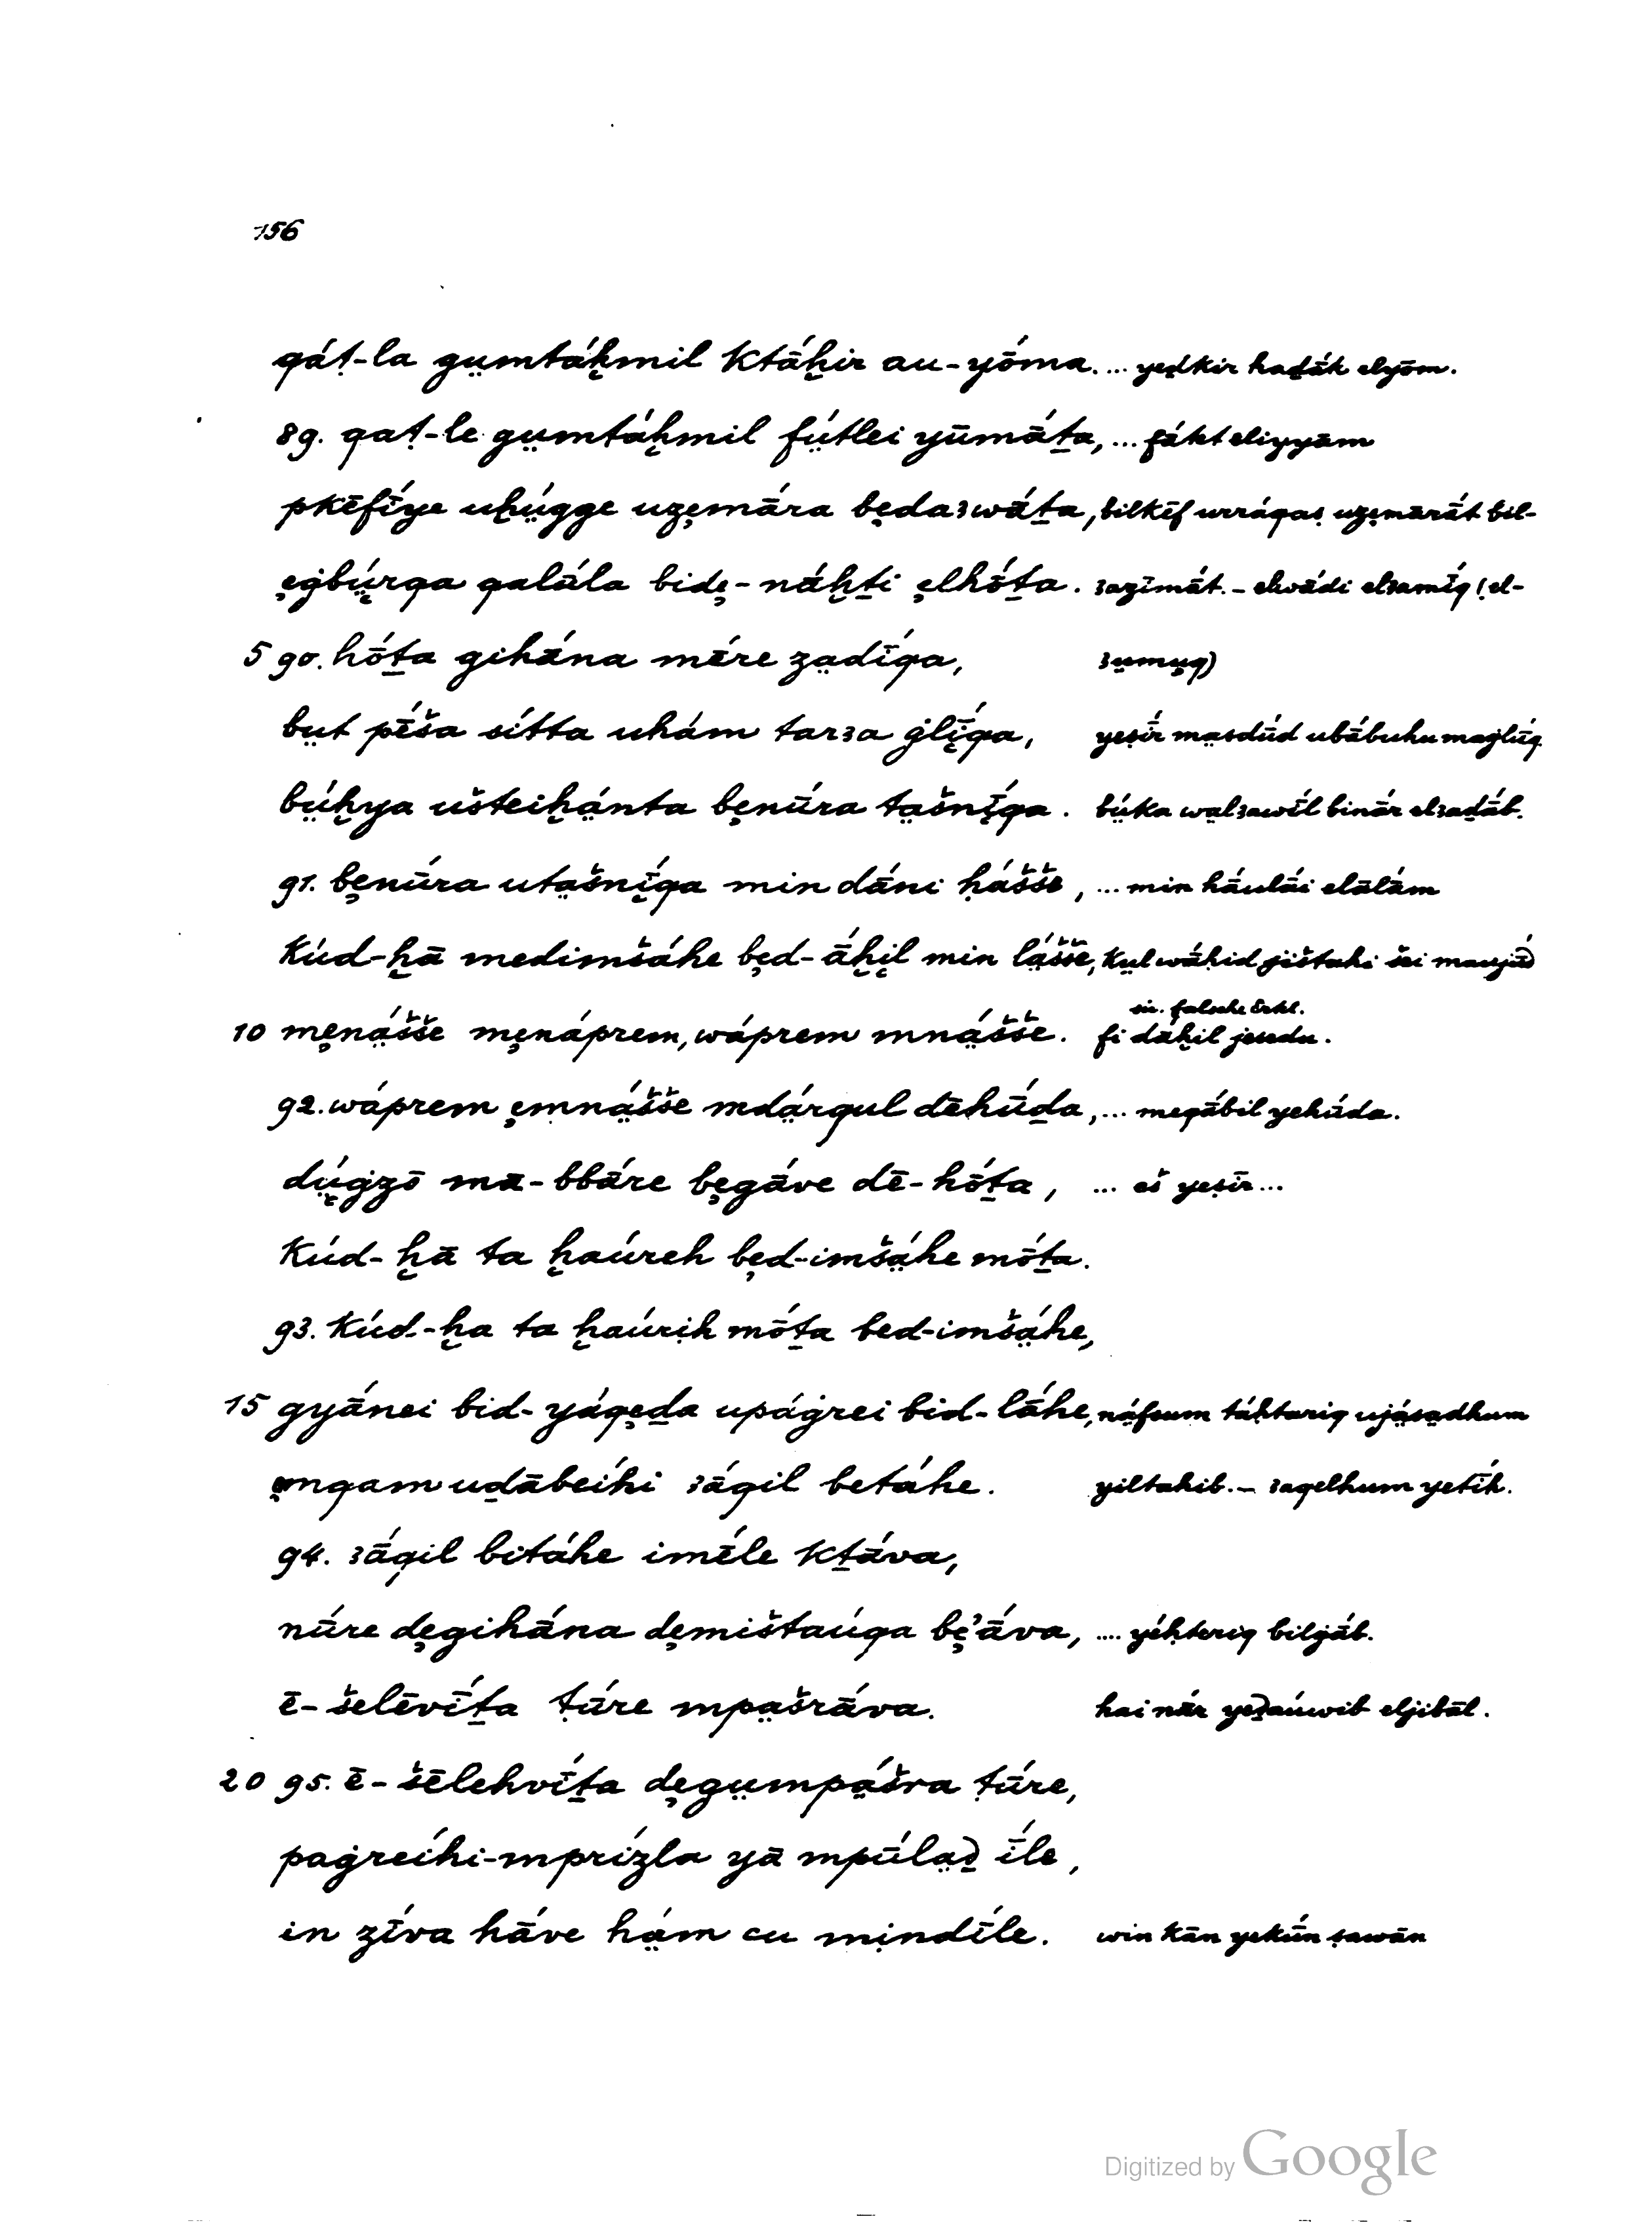 156
qáṭ-la gụ̈mtáḫmil ktā́ḫir au-yṓma. ... yeḏkir haḏák elyōm.
89. qaṭ-le gụ̈mtáḫmil fụ̈́tlei yūmā́ṯa, ... fákt eliyyām
pkēfī́ye uḫụ̈́gge uzẹmā́ra bẹdaʒwā́ṯa, bilkēf urráqaṣ uzẹmārā́t bil-
ẹġbụ̈́rqa qalū́la bidẹ-nā́ḫṯi ẹlhṓṯa. ʒazīmā́t. – elwā́di elʒamī́q (el-
5 90. hṓṯa gihā́na mḗre zạ̈dī́qa, ʒụ̈mụq)
bụ̈t pḗša sítta uhám tarʒa ġlī́qa, yeṣī́r mạ̈sdū́d ubā́buhu maġlū́q
bụ̈́ḫya ušteiḫạ̈́nta bẹnū́ra tạ̈šnī́qa. bụ̈́ka wạ̈lʒawī́l binā́r elʒaḏā́b.
91. bẹnū́ra utạ̈šnī́qa min dā́ni ḥášše, ... min hā́ulā́i elālā́m
Kúd-ḫā medimšáhe bẹd-ā́ḫịl min lạ̈́šše, kụ̈l wā́ḥid jištahi šei maujū́d
sic. falsche Erkl.
10 mẹnạ̈́šše mẹnáprem, wáprem mnạ̈́šše. fi dā́ḫil jesedu.
92. wáprem ẹmnạ̈́šše mdạ̈́rqul dēhū́ḏa, ... meqā́bil yehū́da.
dụ̈́ġzō mā-bbā́re bẹgā́ve dē-hṓṯa, ... eš yeṣīr ...
Kúd-ḫā ta ḫaúreh bẹd-imšạ̈́he mṓṯa.
93. Kúd-ḫa ta ḫaúrịh mṓṯa bed-imšạ̈́he,
15 gyā́nei bid-yáqẹḏa upáġrei bid-lā́he, nạ̈́fsum táḥtariq ujạ̈́sạ̈dhum
ẹmqam uḏābeíhi ʒā́qil betáhe. yiltahib. – ʒaqelhum yetī́h.
94. ʒā́qil bitáhe imḗle kṯā́va,
nū́re dẹgihā́na dẹmištaúqa bẹ'ā́va, .... yéḥteriq bilġā́b.
ē-šelēvī́ṯa ṭū́re mpạ̈šrā́va. hai nār yeḏaúwib eljibāl.
20 95. ē-šēlehvī́ṯa dẹgụ̈mpạ̈́šra ṭū́re,
paġreíhi-mprízla yā mpū́lạ̈ḏ ī́le,
in zī́va hā́ve hạ̈́m cu mịndī́le. win kān yekū́n ṣawān
Digitized by Google